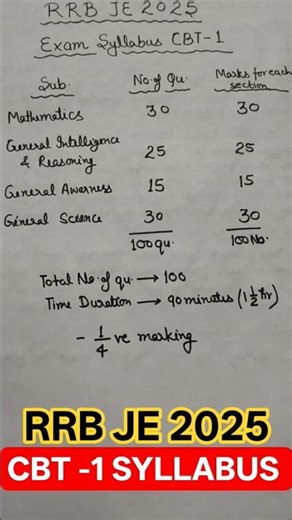 RRB JE 2025
Exam Syllabus CBT-1
Sub. No. of Qu. Marks for each section
Mathematics 30 30
General Intelligence & Reasoning 25 25
General Awarness 15 15
General Science 30 30
100 Qu. 100 No.
Total No. of qu. → 100
Time Duration → 90 minutes (1 1/2 hr)
- 1/4 ve marking
RRB JE 2025
CBT -1 SYLLABUS